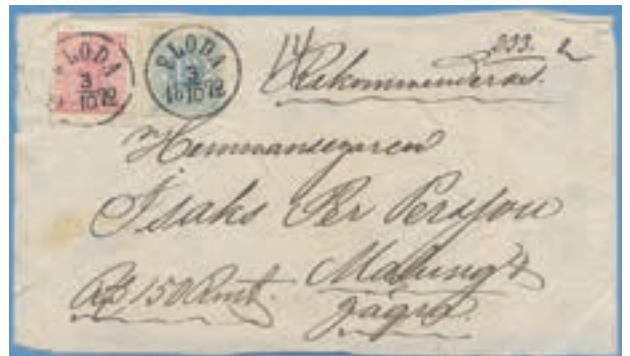 LODA
3
10 72
FLODA
3
18 10 72
14
Rekommenderas.
Hemmansegaren
Isaks Per Persson
150 Rmt. Malung